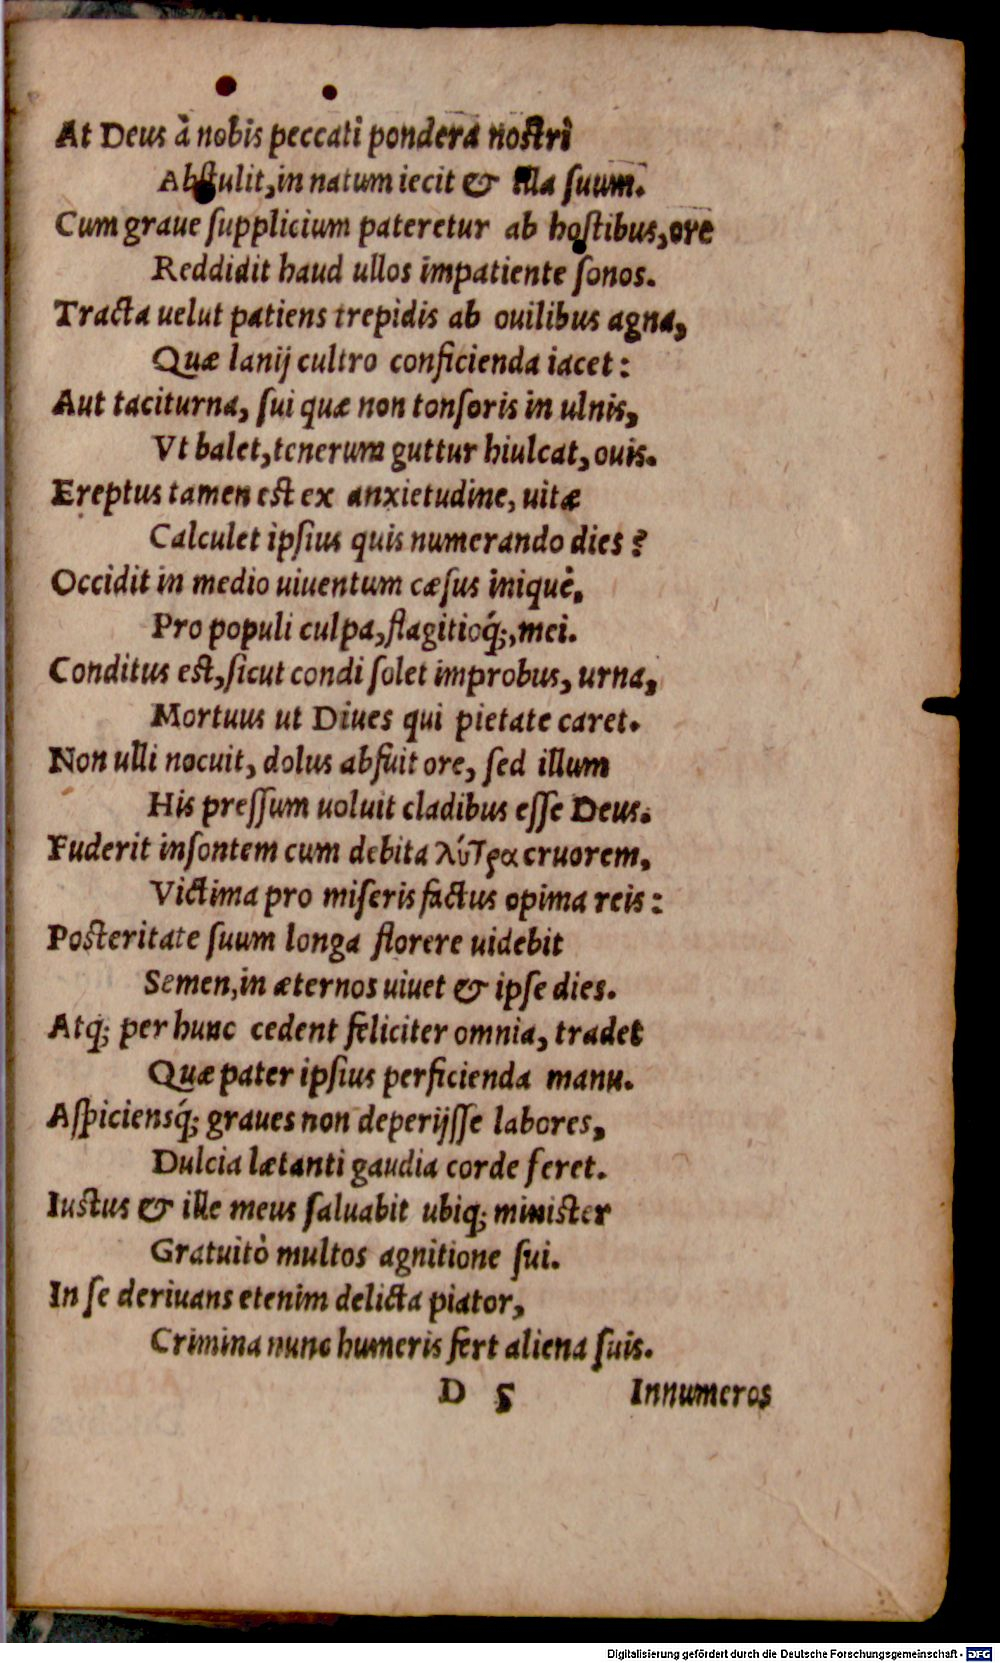 At Deus à nobis peccati pondera nostri
Abstulit, in natum iecit & illa suum.
Cum graue supplicium pateretur ab hostibus, ore
Reddidit haud ullos impatiente sonos.
Tracta uelut patiens trepidis ab ouilibus agna,
Quæ lanij cultro conficienda iacet:
Aut taciturna, sui quæ non tonsoris in ulnis,
Vt balet, tenerum guttur hiulcat, ouis.
Ereptus tamen est ex anxietudine, uitæ
Calculet ipsius quis numerando dies?
Occidit in medio uiuentum cæsus iniquè,
Pro populi culpa, flagitioq́;, mei.
Conditus est, sicut condi solet improbus, urna,
Mortuus ut Diues qui pietate caret.
Non ulli nocuit, dolus abfuit ore, sed illum
His pressum uoluit cladibus esse Deus.
Fuderit insontem cum debita λύτρα cruorem,
Victima pro miseris factus opima reis:
Posteritate suum longa florere uidebit
Semen, in æternos uiuet & ipse dies.
Atq; per hunc cedent feliciter omnia, tradet
Quæ pater ipsius perficienda manu.
Aspiciensq́; graues non deperijsse labores,
Dulcia lætanti gaudia corde feret.
Iustus & ille meus saluabit ubiq; minister
Gratuitò multos agnitione sui.
In se deriuans etenim delicta piator,
Crimina nunc humeris fert aliena suis.
D 5 Innumeros
Digitalisierung gefördert durch die Deutsche Forschungsgemeinschaft - DFG